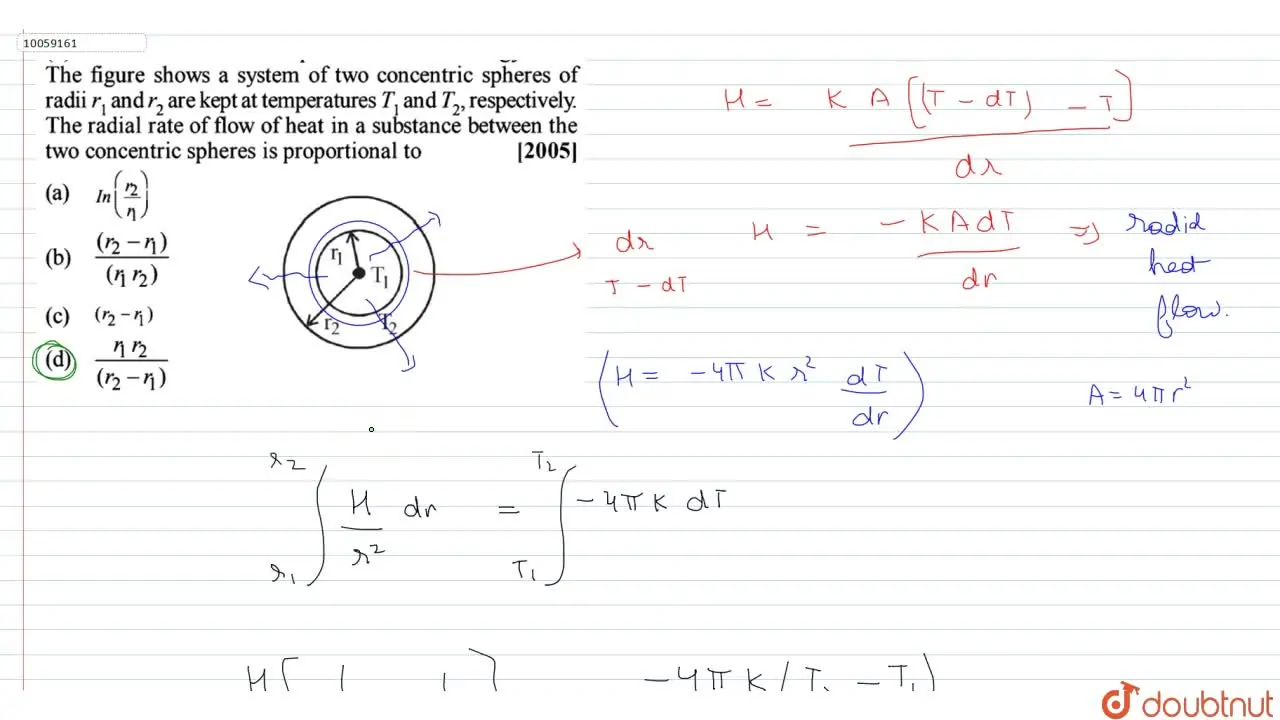 10059161
The figure shows a system of two concentric spheres of
radii r₁ and r₂ are kept at temperatures T₁ and T₂, respectively.
The radial rate of flow of heat in a substance between the
two concentric spheres is proportional to [2005]
(a) In(r₂/r₁)
(b) (r₂ - r₁)/(r₁ r₂)
(c) (r₂ - r₁)
(d) r₁ r₂/(r₂ - r₁)
r₁
T₁
r₂
T₂
H = K A [(T - dT) - T] / dr
dr
T - dT
H = - K A dT / dr ⇒ radial
heat
flow.
(H = -4π K r² dT/dr)
A = 4πr²
∫ r₁ r₂ H/r² dr = ∫ T₁ T₂ -4πK dT
-4πK (T₂ - T₁)
doubtnut